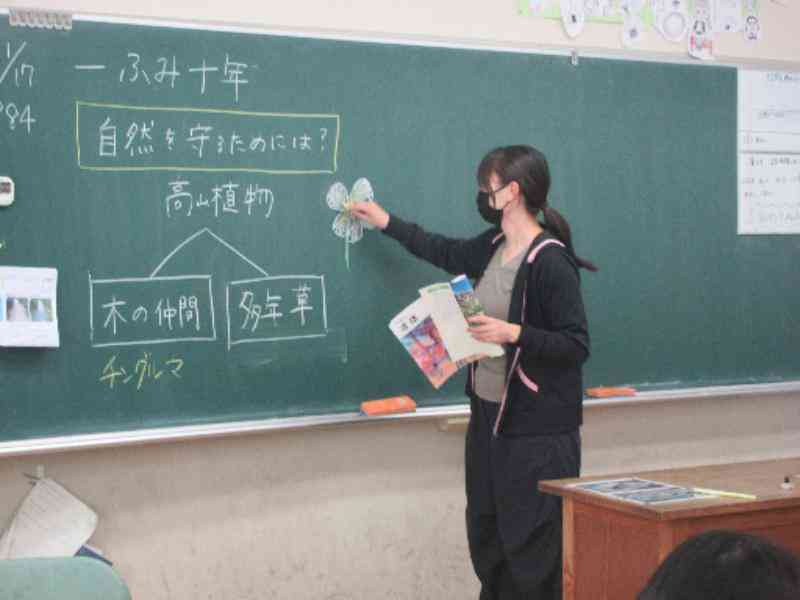 1/17
P84
一ふみ十年
自然を守るためには?
高山植物
木の仲間
多年草
チングルマ
道徳